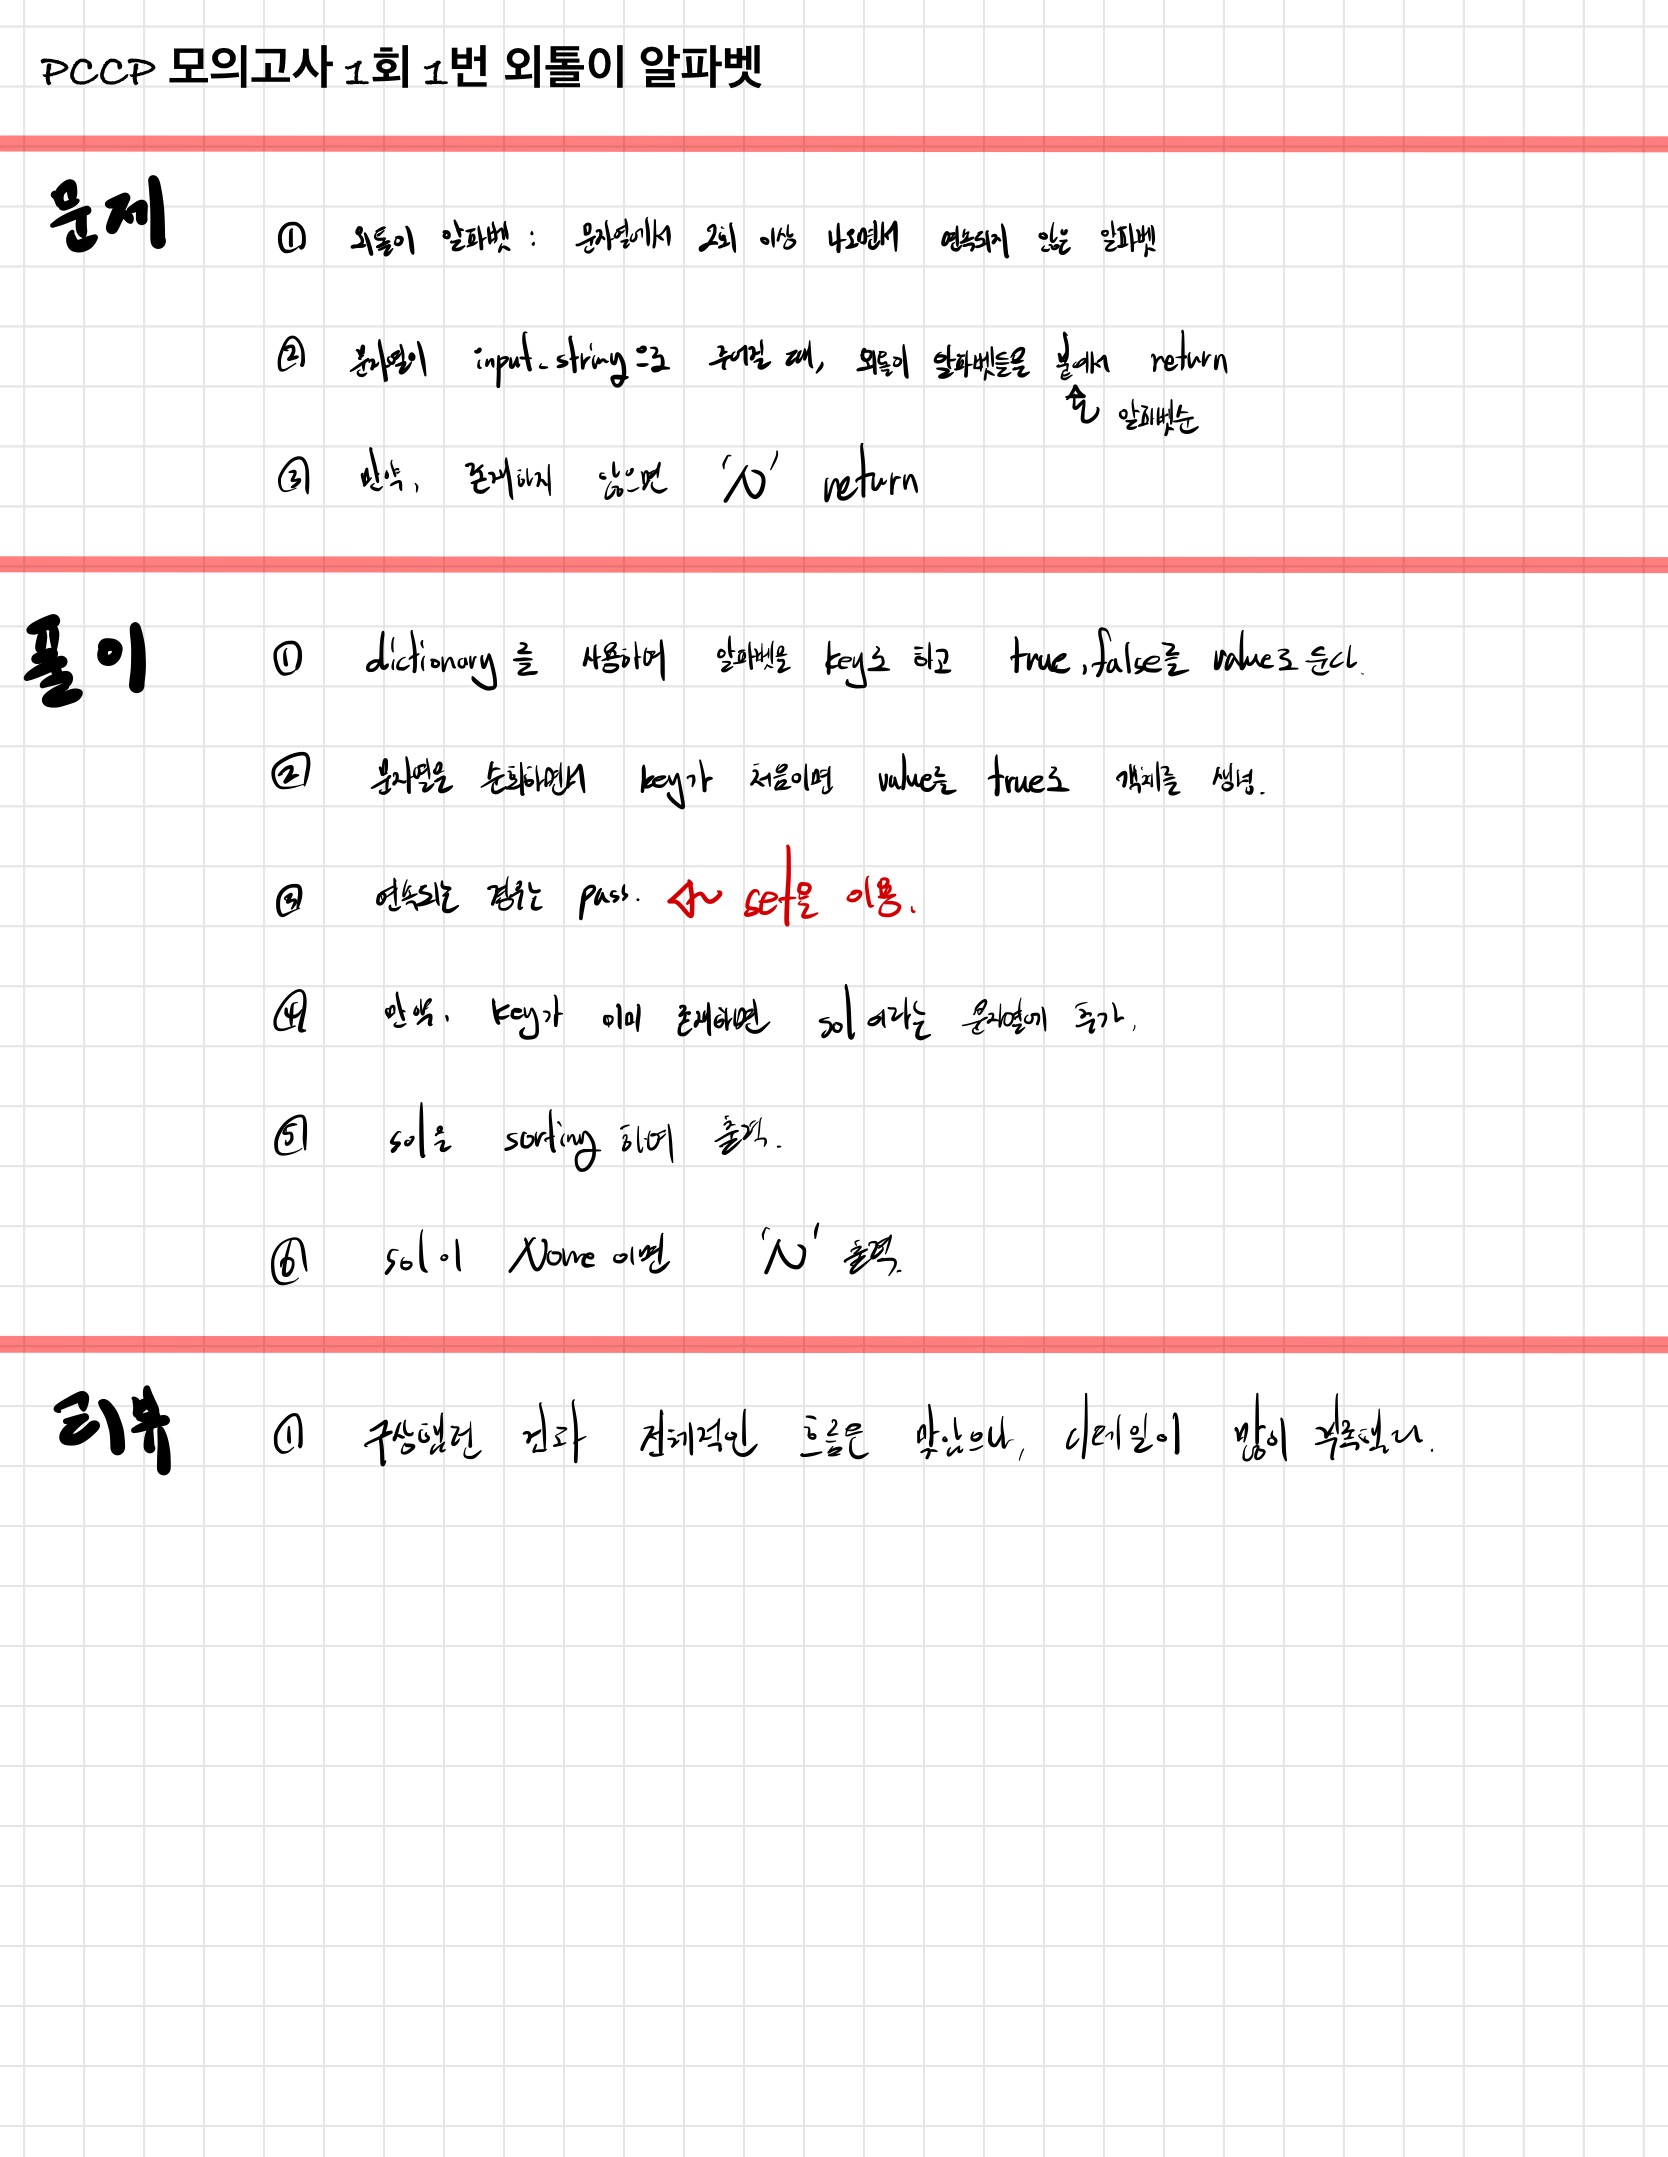 PCCP 모의고사 1회 1번 외톨이 알파벳
문제
① 외톨이 알파벳 : 문자열에서 2회 이상 나오면서 연속되지 않은 알파벳
② 문자열이 input_string으로 주어질 때, 외톨이 알파벳들을 붙여서 return
알파벳순
③ 만약, 존재하지 않으면 'N' return
풀이
① dictionary를 사용하여 알파벳을 key로 하고 true, false를 value로 둔다.
② 문자열을 순회하면서 key가 처음이면 value를 true로 객체를 생성.
③ 연속되는 경우는 pass. set을 이용.
④ 만약, key가 이미 존재하면 sol이라는 문자열에 추가.
⑤ sol을 sorting 하여 출력.
⑥ sol이 None 이면 'N' 출력.
리뷰
① 구상했던 것과 전체적인 흐름은 맞았으나, 디테일이 많이 부족했다.